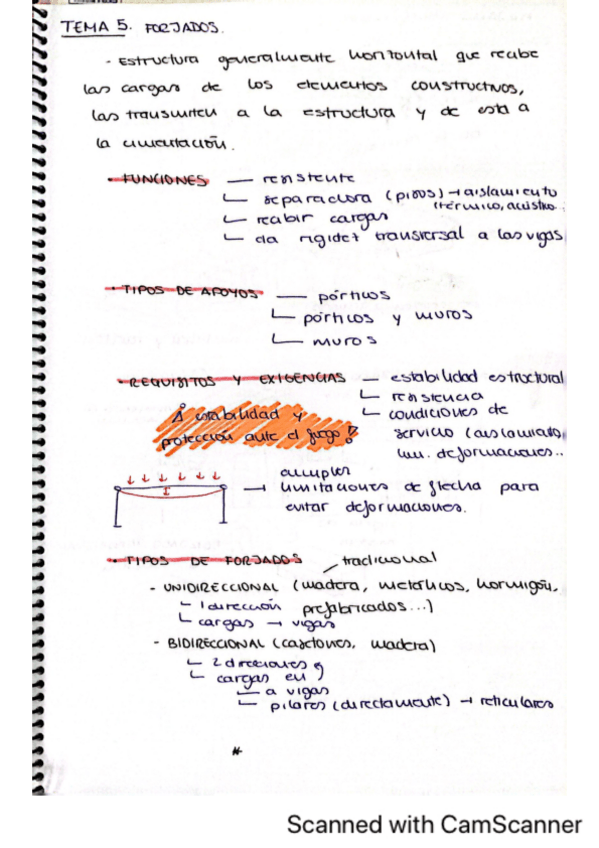 TEMA 5. FORJADOS.
- Estructura generalmente horizontal que recibe
las cargas de los elementos constructivos,
las transmiten a la estructura y de esta a
la cimentación.
• FUNCIONES — resistente
separadora (pisos) → aislamiento
(térmico, acústico.
recibir cargas
da rigidez transversal a las vigas
• TIPOS DE APOYOS — pórticos
pórticos y muros
muros
• REQUISITOS Y EXIGENCIAS — estabilidad estructural
resistencia
condiciones de
servicio (aislamiento,
lim. deformaciones..
estabilidad y
protección ante el fuego!
cumplen
→ limitaciones de flecha para
evitar deformaciones.
• TIPOS DE FORJADOS
tradicional
- UNIDIRECCIONAL (madera, metálicos, hormigón,
prefabricados...)
1 dirección
cargas → vigas
- BIDIRECCIONAL (casetones, madera)
2 direcciones y
cargas en
a vigas
pilares (directamente) → reticulares
Scanned with CamScanner